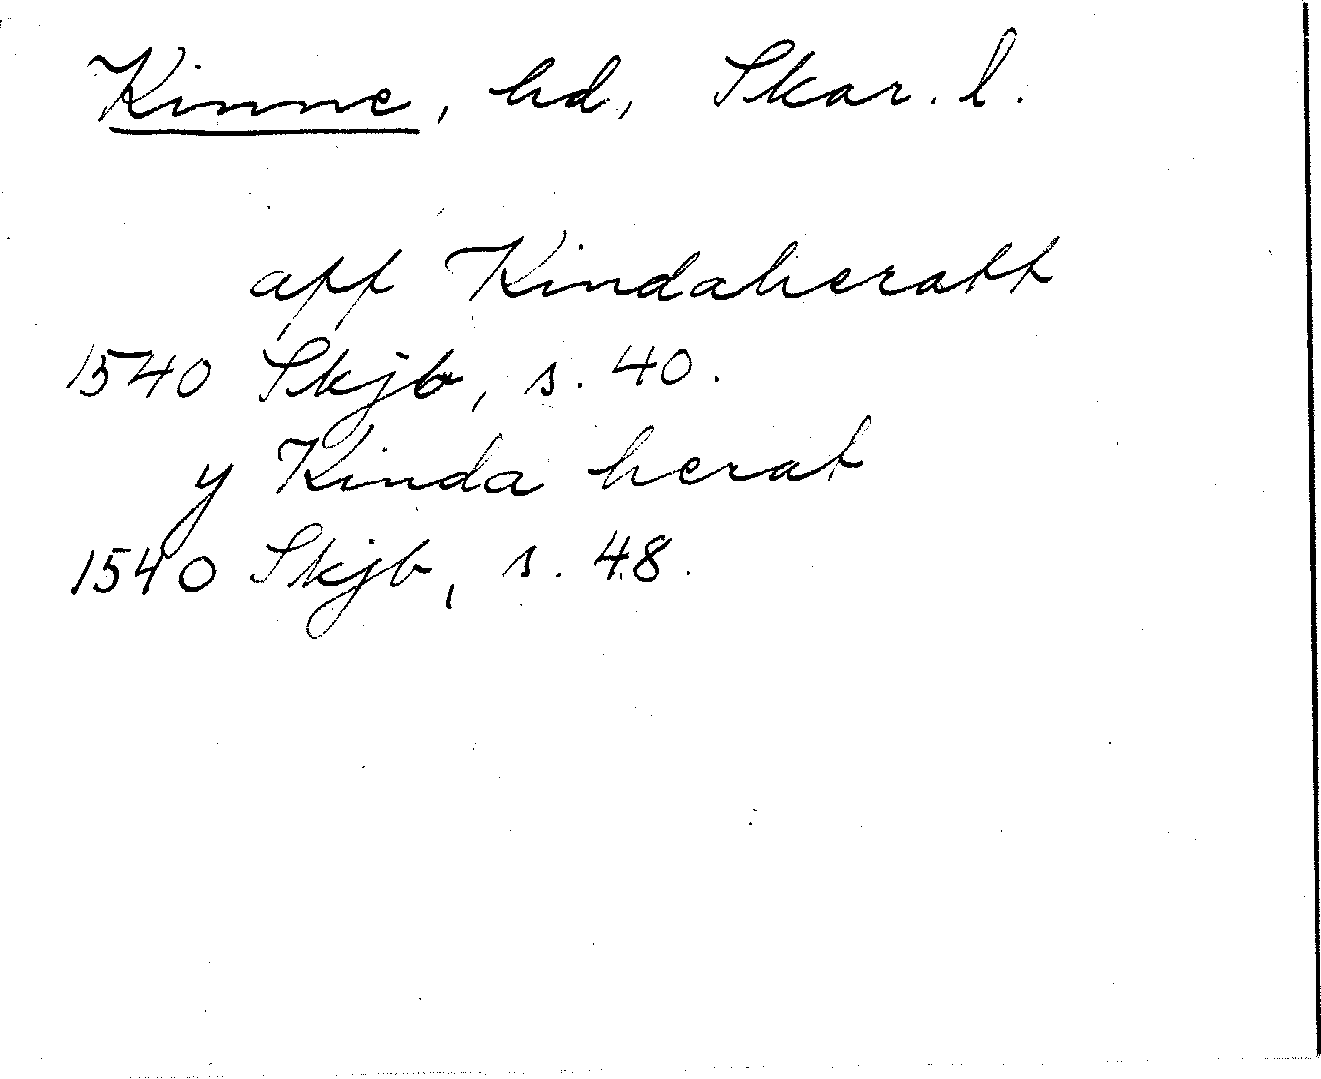 Kinne, hd, Skar. l.
aff Kindaheratt
1540 Skjb, s. 40.
y Kinda herat
1540 Skjb, s. 48.